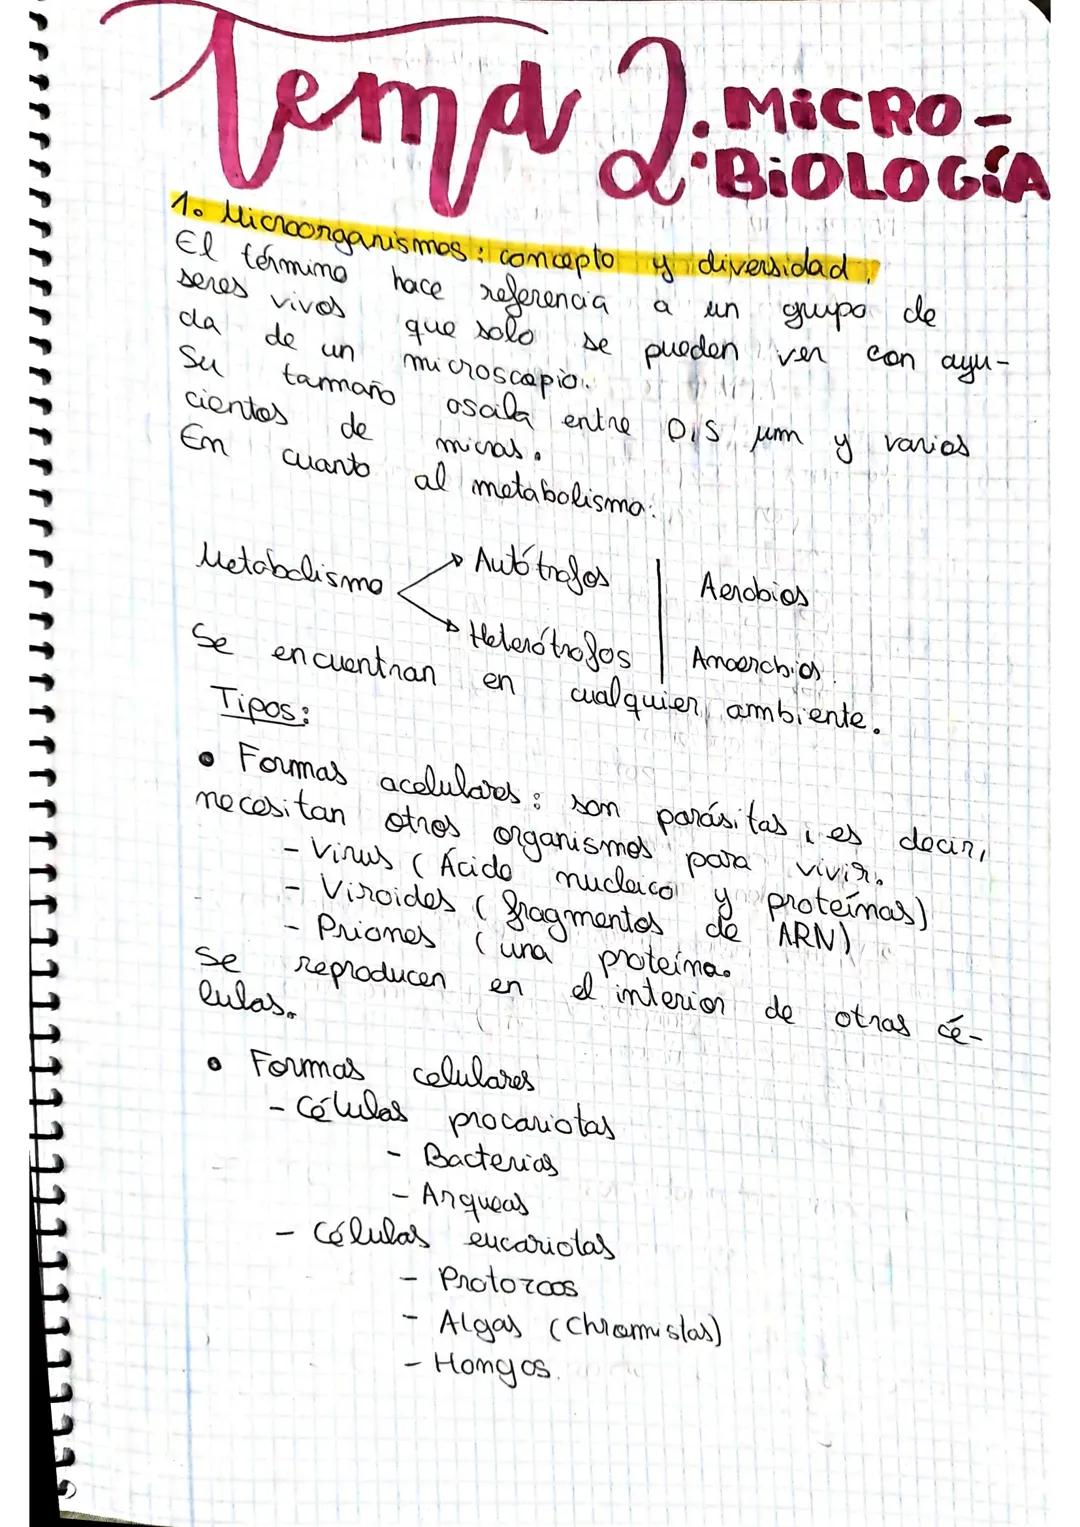 Tema 2: MiCRO-
BiOLOGÍA
1. Microorganismos: concepto y diversidad.
El término hace referencia a un grupo de
seres vivos que solo se pueden ver con ayu-
da de un microscopio.
Su tamaño oscila entre 0,5 µm y varios
cientos de micras.
En cuanto al metabolismo:
Metabolismo → Autótrofos | Aerobios
→ Heterótrofos | Anaerobios.
Se encuentran en cualquier ambiente.
Tipos:
• Formas acelulares: son parásitas, es decir,
necesitan otros organismos para vivir.
- Virus (Ácido nucleico y proteínas)
- Viroides (fragmentos de ARN)
- Priones (una proteína.
Se reproducen en el interior de otras cé-
lulas.
• Formas celulares
- Células procariotas
- Bacterias
- Arqueas
- Células eucariotas
- Protozoos
- Algas (Chromistas)
- Hongos.